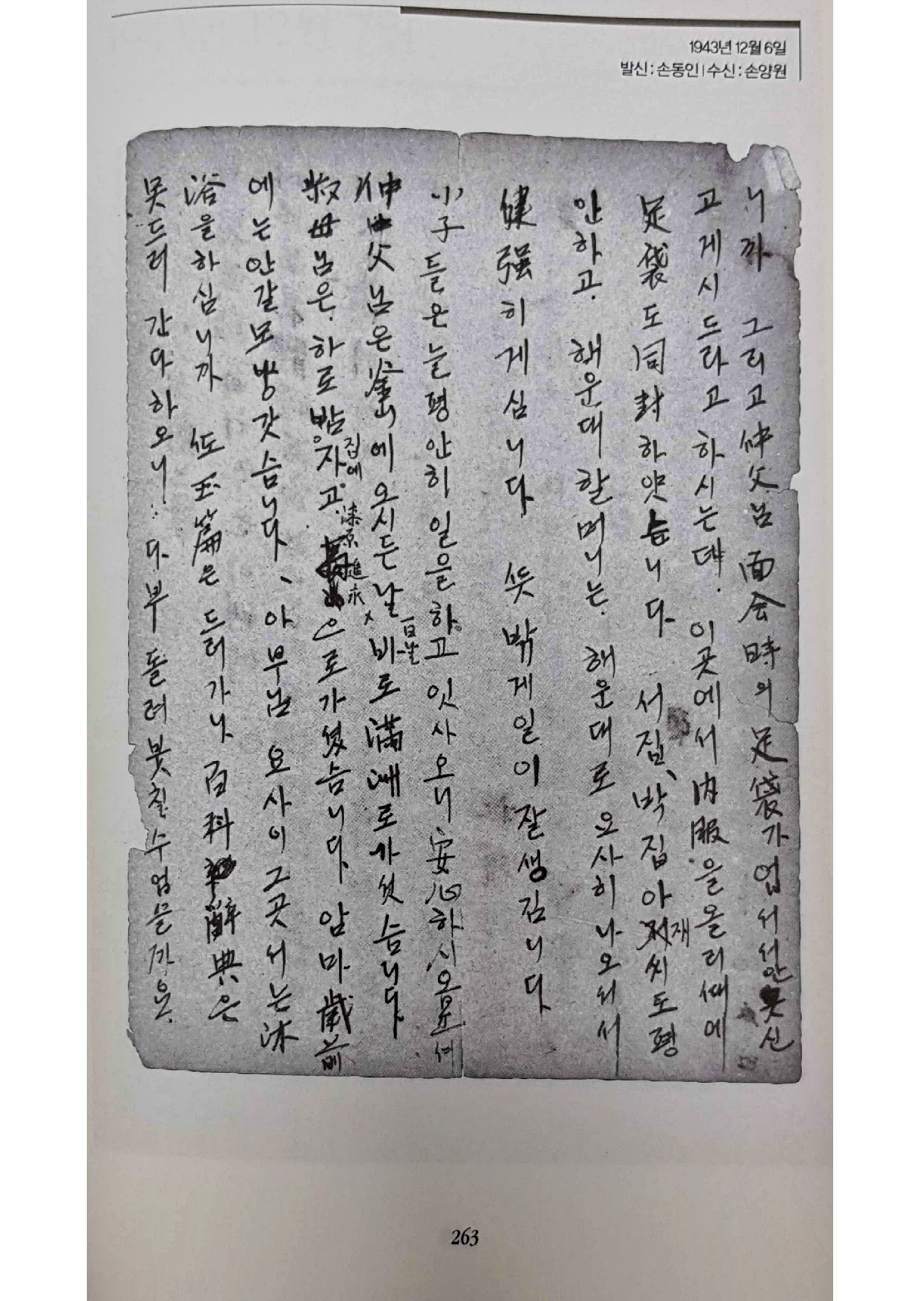 1943년 12월 6일
발신 : 손동인 | 수신 : 손양원
니까 그리고 仲父님 面会時의 足袋가 업서서 안신
고 게시드라고 하시는데. 이곳에서 内服을 올리때에
足袋도 同封하얏습니다. 서집、박집 아재씨도 평
안하고. 해운대 할머니는. 해운대로 오사히 나오서서
健强히 게심니다. 뜻밖게 일이 잘 생김니다
小子들은 늘 평안히 일을 하고 잇사오니 安心하시옵
仲父님은 釜山에 오시든 날 비로 満洲로 가섯슴니다.
叔母님은. 하로밤 자고. 으로 가셨슴니다. 암마 歲前
집에
에는 안갈 모방갓슴니다、아부님 요사이 그곳서는 沐
浴을 하심니까 玉篇은 드러가나 百科辭典은
못드러 간다하오니. 다부 돌려 붓칠수 업을까요.
263